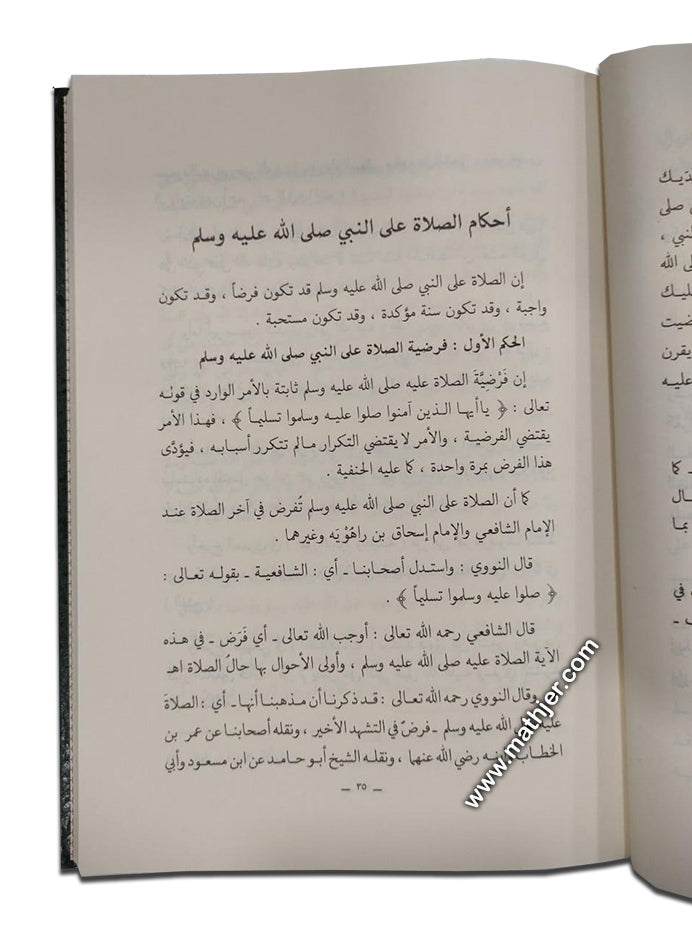 أحكام الصلاة على النبي صلى الله عليه وسلم
إن الصلاة على النبي صلى الله عليه وسلم قد تكون فرضاً ، وقد تكون
واجبة ، وقد تكون سنة مؤكدة ، وقد تكون مستحبة .
الحكم الأول : فرضية الصلاة على النبي صلى الله عليه وسلم
إن فَرْضِيَّةَ الصلاة عليه صلى الله عليه وسلم ثابتة بالأمر الوارد في قوله
تعالى : ﴿ ياأيها الذين آمنوا صلوا عليه وسلموا تسليماً ﴾ ، فهذا الأمر
يقتضي الفرضية ، والأمر لا يقتضي التكرار مالم تتكرر أسبابه ، فيؤدَّى
هذا الفرض بمرة واحدة ، كما عليه الحنفية .
كما أن الصلاة على النبي صلى الله عليه وسلم تُفرض في آخر الصلاة عند
الإمام الشافعي والإمام إسحاق بن راهُوْيَه وغيرهما .
قال النووي : واستدل أصحابنا ـ أي : الشافعية ـ بقوله تعالى :
﴿ صلوا عليه وسلموا تسليماً ﴾ .
قال الشافعي رحمه الله تعالى : أوجب الله تعالى ـ أي فَرَض ـ في هذه
الآية الصلاة عليه صلى الله عليه وسلم ، وأولى الأحوال بها حالُ الصلاة اهـ
وقال النووي رحمه الله تعالى : قد ذكرنا أن مذهبنا أنها ـ أي : الصلاةَ
الله عليه وسلم ـ فرضٌ في التشهد الأخير ، ونقله أصحابنا عن عمر بن
الخطاب رضي الله عنهما ، ونقله الشيخ أبو حامد عن ابن مسعود وأبي
ـ ٣٥ ـ
ـديك
صلى
النبي ،
الله
ـليك
ضيت
يقرن
عليه
ـ كما
ـال
بما
في
ـ
www.mathjer.com